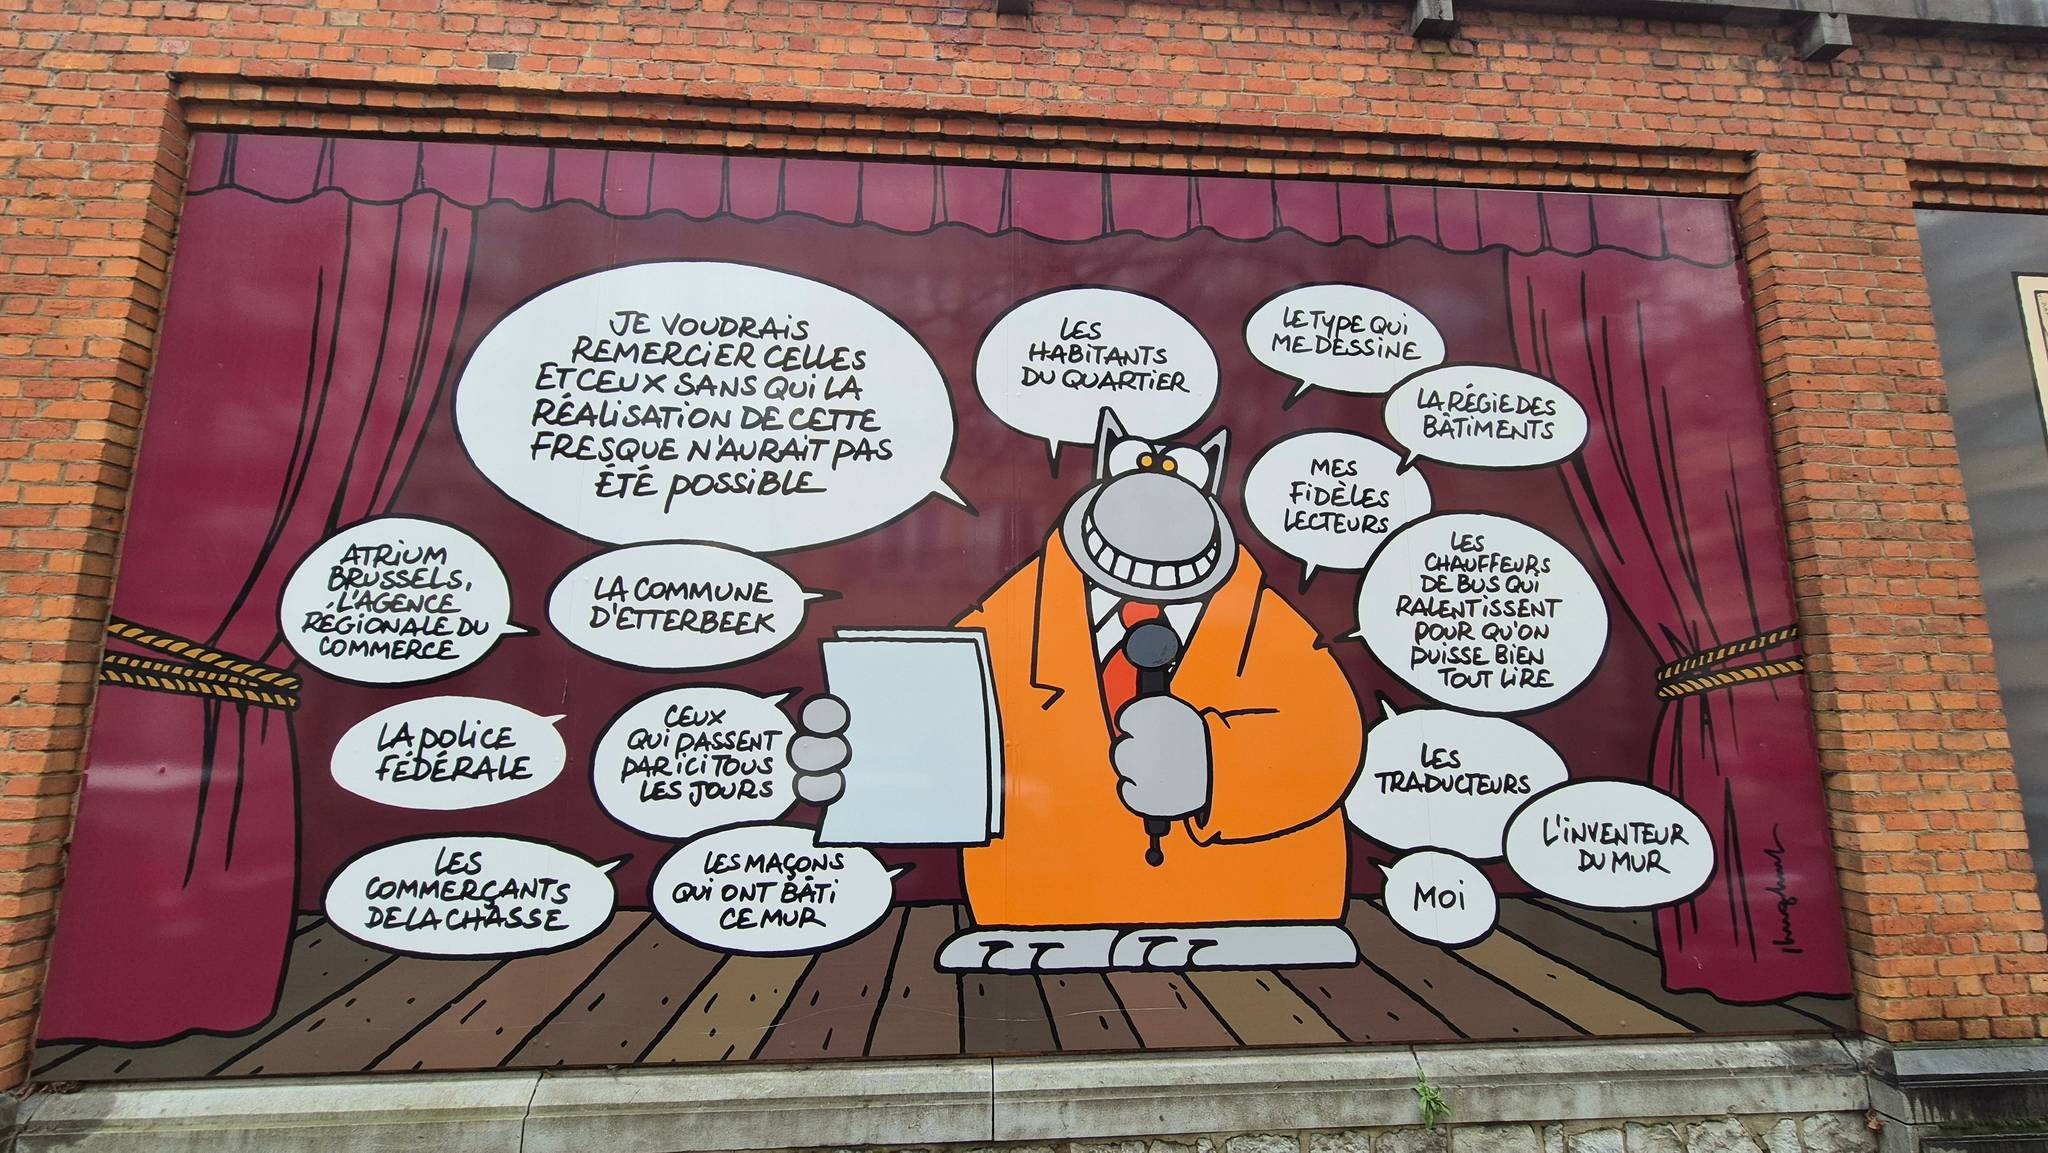 JE VOUDRAIS
REMERCIER CELLES
ET CEUX SANS QUI LA
RÉALISATION DE CETTE
FRESQUE N'AURAIT PAS
ÉTÉ POSSIBLE
LES
HABITANTS
DU QUARTIER
LE TYPE QUI
ME DESSINE
LA RÉGIE DES
BÂTIMENTS
MES
FIDÈLES
LECTEURS
ATRIUM
BRUSSELS,
L'AGENCE
RÉGIONALE DU
COMMERCE
LA COMMUNE
D'ETTERBEEK
LES
CHAUFFEURS
DE BUS QUI
RALENTISSENT
POUR QU'ON
PUISSE BIEN
TOUT LIRE
LA POLICE
FÉDÉRALE
CEUX
QUI PASSENT
PAR ICI TOUS
LES JOURS
LES
TRADUCTEURS
L'INVENTEUR
DU MUR
LES
COMMERÇANTS
DE LA CHASSE
LES MAÇONS
QUI ONT BÂTI
CE MUR
MOI